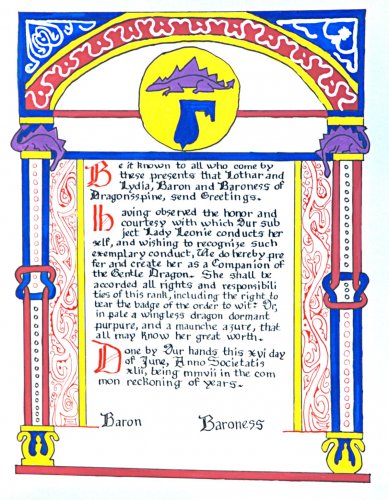 Be it known to all who come by
these presents that Lothar and
Lydia, Baron and Baroness of
Dragonsspine, send Greetings.
Having observed the honor and
courtesy with which Our sub
ject Lady Leonie conducts her
self, and wishing to recognize such
exemplary conduct, We do hereby pre
fer and create her as a Companion of
the Gentle Dragon. She shall be
accorded all rights and responsibili
ties of this rank, including the right to
bear the badge of the order to wit: Or,
in pale a wingless dragon dormant
purpure, and a maunche azure, that
all may know her great worth.
Done by Our hands this xvi day
of June, Anno Societatis
xlii, being mmvii in the com
mon reckoning of years.
Baron Baroness